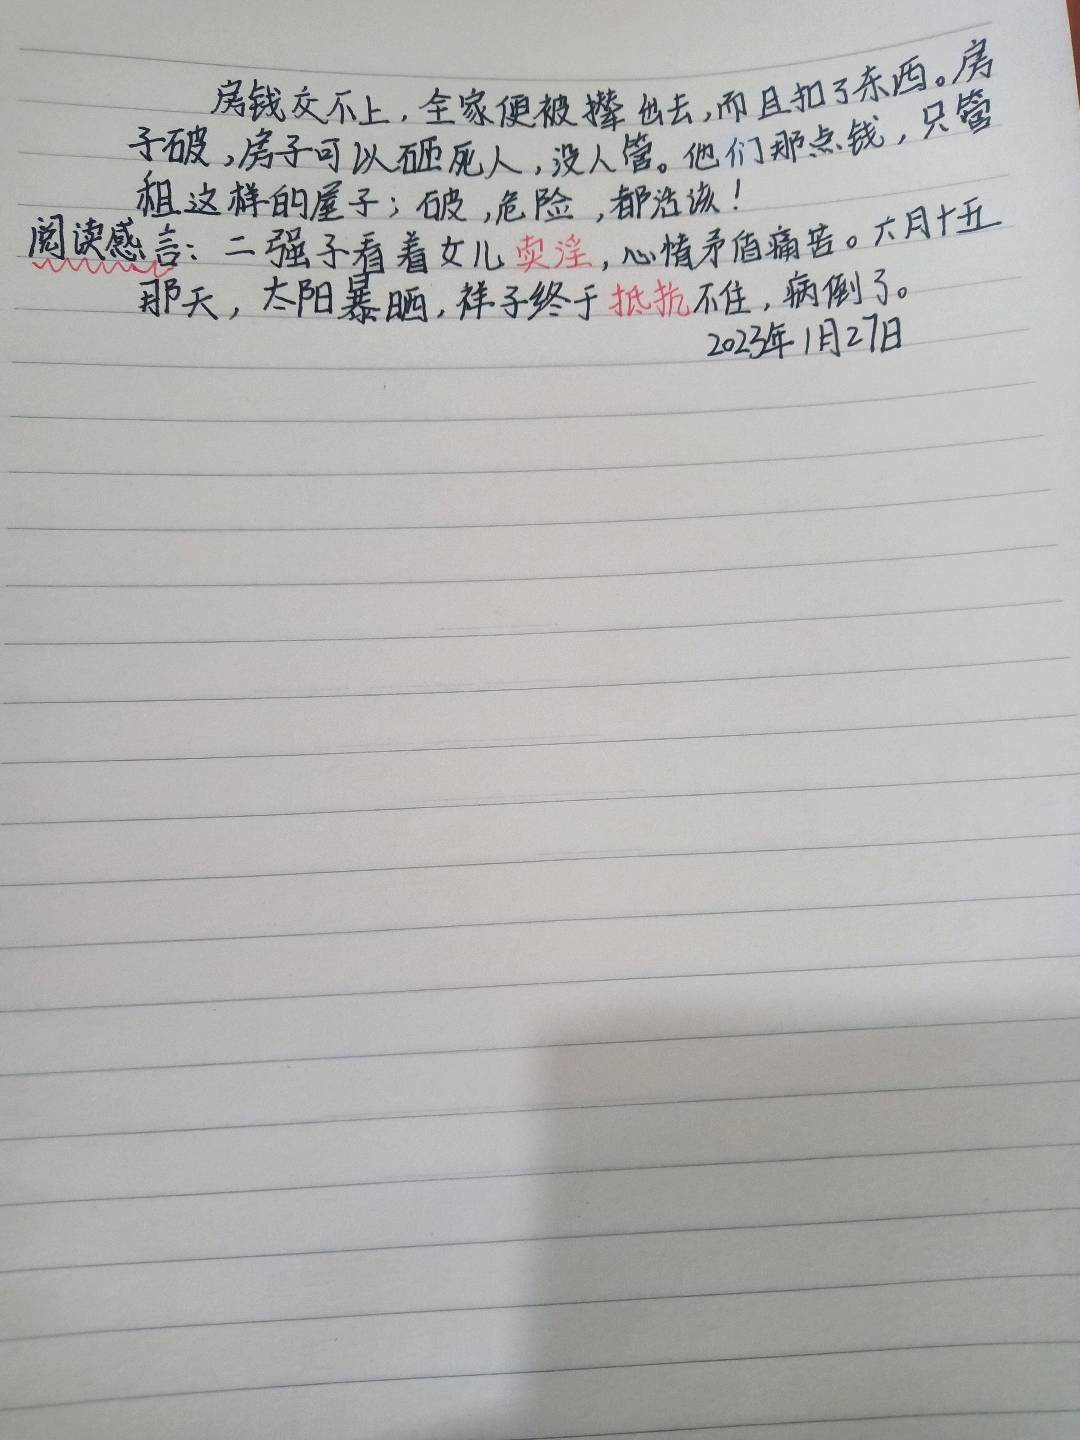 房钱交不上，全家便被撵出去，而且扣了东西。房
子破，房子可以砸死人，没人管。他们那点钱，只管
租这样的屋子；破，危险，都活该！
阅读感言：二强子看着女儿卖淫，心情矛盾痛苦。六月十五
那天，太阳暴晒，祥子终于抵抗不住，病倒了。
2023年1月27日